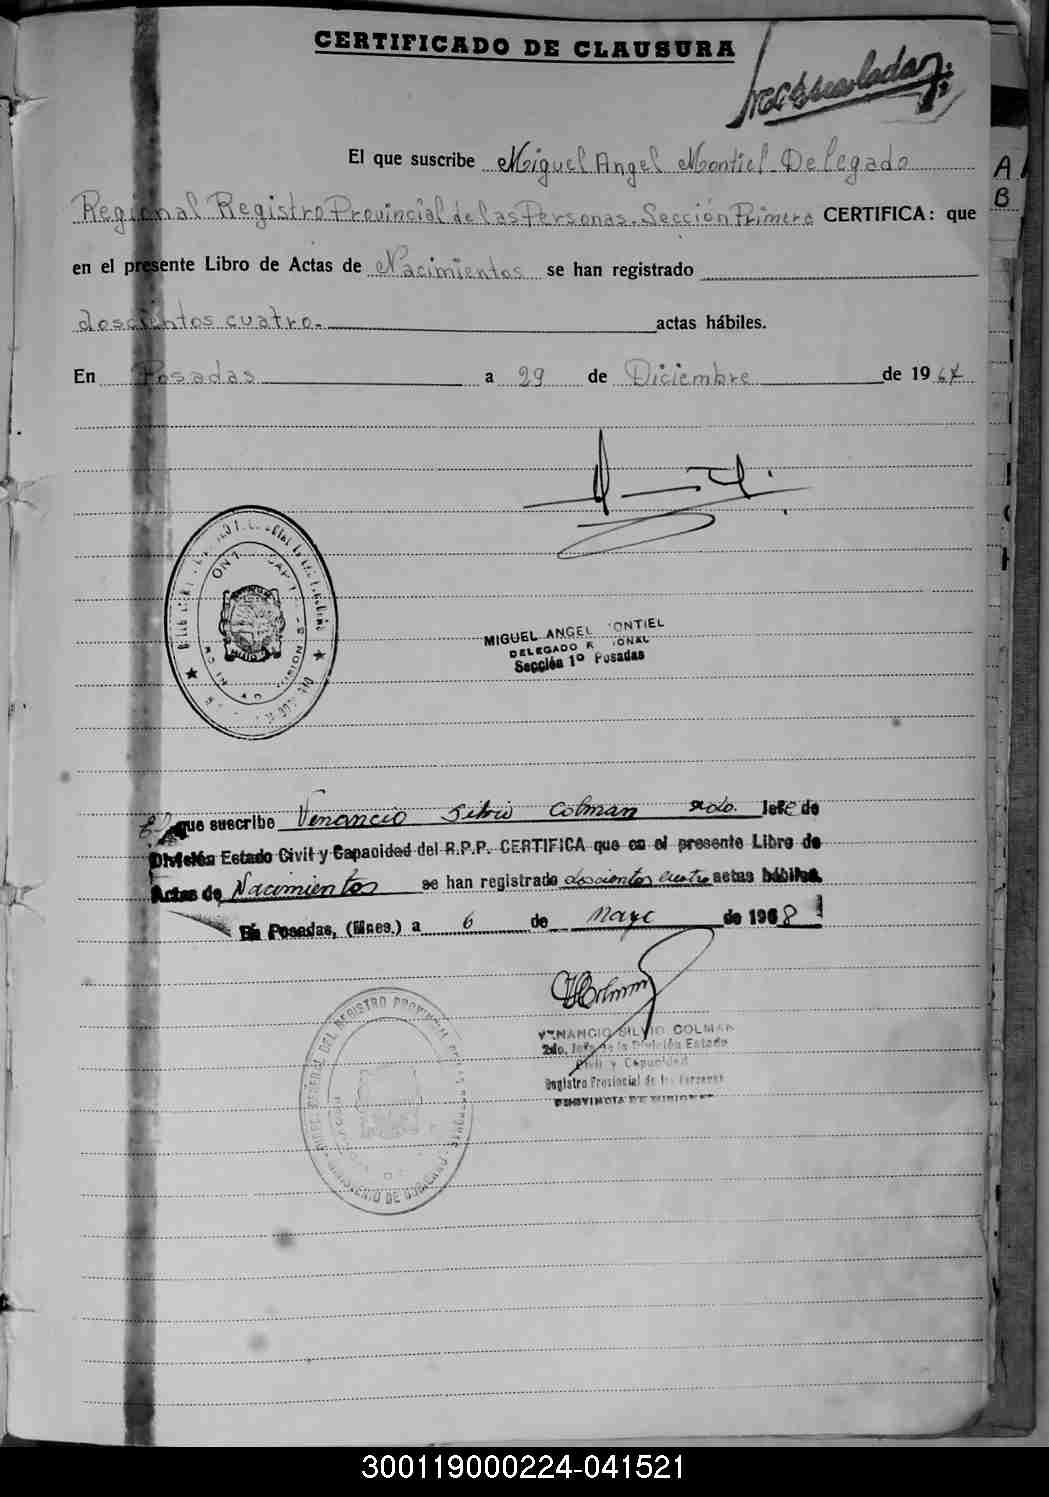 CERTIFICADO DE CLAUSURA
El que suscribe Miguel Angel Montiel - Delegado
Regional Registro Provincial de las Personas - Sección Primera CERTIFICA: que
en el presente Libro de Actas de Nacimientos se han registrado
doscientos cuatro.- actas hábiles.
En Posadas a 29 de Diciembre de 1967
A
B
MIGUEL ANGEL ONTIEL
DELEGADO R IONAL
Sección 1º Posadas
que suscribe Venancio Silvio Colman 2do. Jefe de
División Estado Civil y Capacidad del R.P.P. CERTIFICA que en el presente Libro de
Actas de Nacimientos se han registrado doscientos cuatro actas hábiles.
En Posadas, (Mnes.) a 6 de Mayo de 1968
VENANCIO SILVIO COLMAN
2do. Jefe de la División Estado
Civil y Capacidad
Registro Provincial de las Personas
PROVINCIA DE MISIONES
DEL REGISTRO PROVINCIAL
MINISTERIO DE GOBIERNO
300119000224-041521